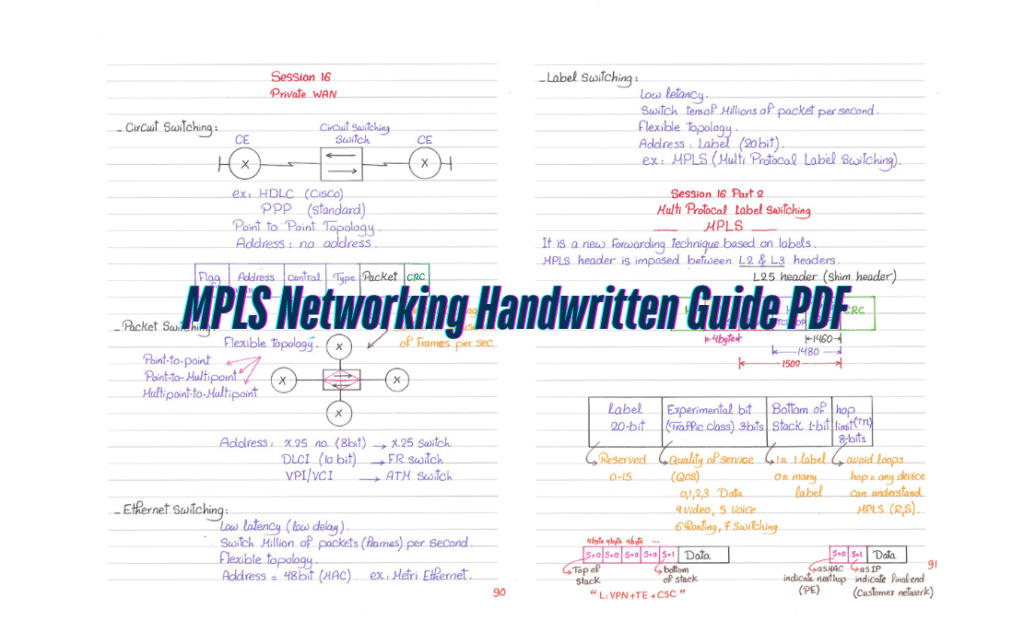 Session 16
Private WAN
- Circuit Switching:
CE
Circuit Switching
Switch
CE
X
X
ex: HDLC (Cisco)
PPP (standard)
Point to Point Topology.
Address: no address.
Flag Address control Type Packet CRC
- Packet Switching:
Flexible topology.
of Frames per sec
Point-to-point
Point-to-Multipoint
Multipoint-to-Multipoint
X
X
X
X
Address: X.25 no. (8bit) → X.25 Switch
DLCI (10 bit) → FR switch
VPI/VCI → ATM Switch
- Ethernet Switching:
Low latency (low delay).
Switch Million of packets (frames) per second.
Flexible topology.
Address = 48bit (MAC) ex: Metri Ethernet.
90
MPLS Networking Handwritten Guide PDF
- Label Switching:
Low letancy.
Switch tens of Millions of packet per second.
Flexible topology.
Address: Label (20bit).
ex: MPLS (Multi Protocal Label Switching).
Session 16 Part 2
Multi Protocal Label Switching
MPLS
It is a new Forwarding technique based on labels.
MPLS header is imposed between L2 & L3 headers.
L2.5 header (Shim header)
CRC
4byte
1460
1480
1500
label 20-bit
Experimental bit (Traffic class) 3-bits
Bottom of Stack 1-bit
hop limit (TTL) 8-bits
Reserved
0-15
Quality of service
(QoS)
0,1,2,3 Data
4 video, 5 Voice
6 Routing, 7 Switching
1 = 1 label
0 = many
label
avoid loops
hop = any device
can understand
MPLS (R,S).
4byte 4byte 4byte ...
S=0 S=0 S=0 S=0 S=1 Data
Top of
stack
bottom
of stack
" L: VPN+TE+CSC "
S=0 S=1 Data
as MAC
indicate nexthop
(PE)
as IP
indicate Final end
(Customer network)
91